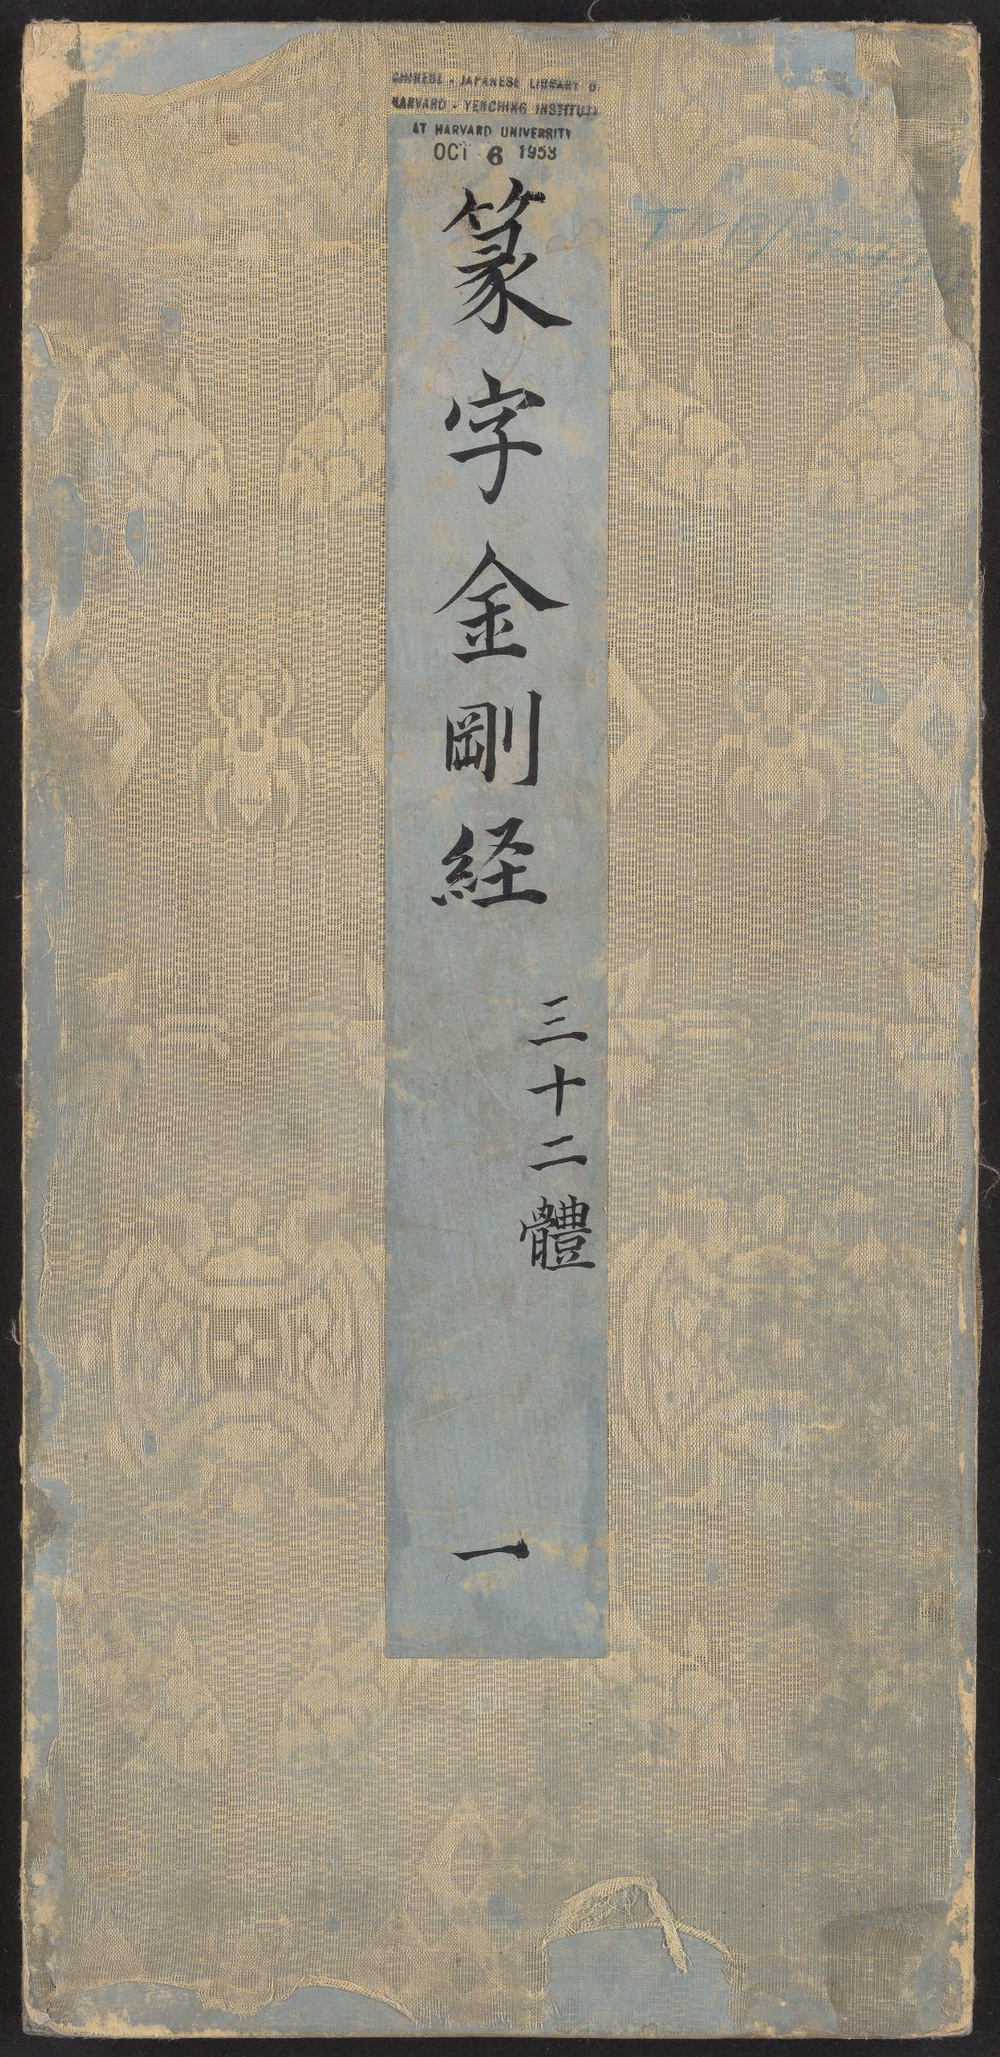 CHINESE - JAPANESE LIBRARY O
HARVARD - YENCHING INSTITUT
AT HARVARD UNIVERSITY
OCT 6 1953
篆字金剛経
三十二體
一